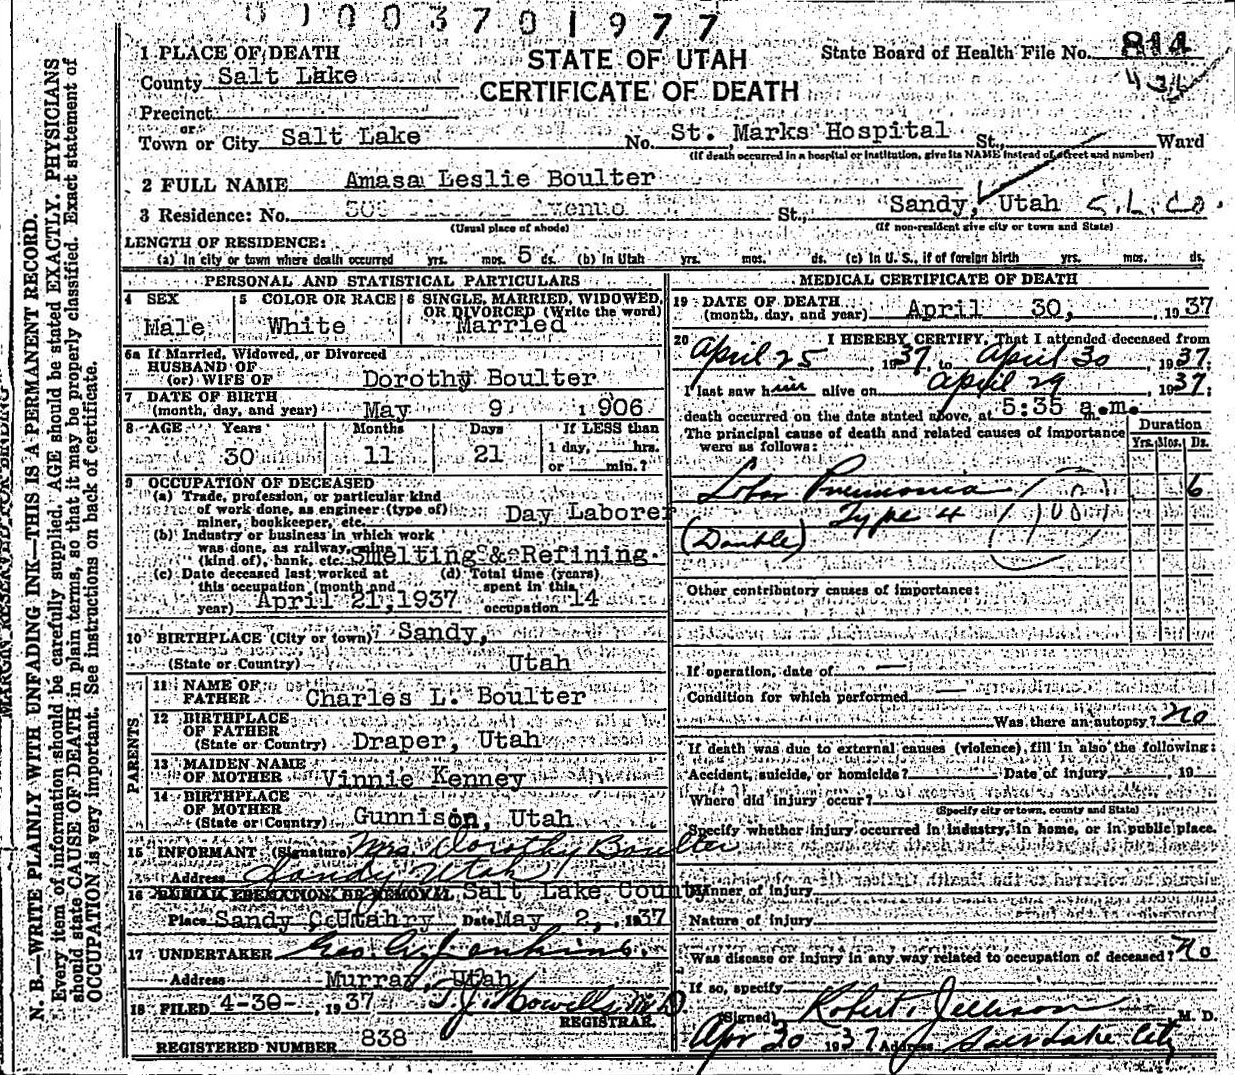 01003701977
1 PLACE OF DEATH
STATE OF UTAH
CERTIFICATE OF DEATH
State Board of Health File No. 811
County Salt Lake
Precinct
or
Town or City Salt Lake No. St. Marks Hospital St., Ward
(If death occurred in a hospital or institution, give its NAME instead of street and number)
2 FULL NAME Amasa Leslie Boulter
3 Residence: No. Avenue St., Sandy, Utah S.L.Co.
(Usual place of abode) (If non-resident give city or town and State)
LENGTH OF RESIDENCE:
(a) In city or town where death occurred yrs. mos. 5 ds. (b) In Utah yrs. mos. ds. (c) In U. S., if of foreign birth yrs. mos. ds.
PERSONAL AND STATISTICAL PARTICULARS
4 SEX Male
5 COLOR OR RACE White
6 SINGLE, MARRIED, WIDOWED, OR DIVORCED (Write the word) Married
6a If Married, Widowed, or Divorced
HUSBAND OF
(or) WIFE OF Dorothy Boulter
7 DATE OF BIRTH
(month, day, and year) May 9 1906
8 AGE Years Months Days If LESS than
30 11 21 1 day, hrs.
or min.?
9 OCCUPATION OF DECEASED
(a) Trade, profession, or particular kind
of work done, as engineer (type of)
miner, bookkeeper, etc. Day Laborer
(b) Industry or business in which work
was done, as railway, mine
(kind of), bank, etc. Smelting & Refining
(c) Date deceased last worked at
this occupation (month and
year) April 21, 1937
(d) Total time (years)
spent in this
occupation 14
10 BIRTHPLACE (City or town) Sandy,
(State or Country) Utah
PARENTS
11 NAME OF
FATHER Charles L. Boulter
12 BIRTHPLACE
OF FATHER
(State or Country) Draper, Utah
13 MAIDEN NAME
OF MOTHER Vinnie Kenney
14 BIRTHPLACE
OF MOTHER
(State or Country) Gunnison, Utah
15 INFORMANT (Signature) Mrs. Dorothy Boulter
Address Sandy Utah
16 BURIAL, CREMATION, OR REMOVAL Salt Lake County
Place Sandy Utah Date May 2, 1937
17 UNDERTAKER Geo. A. Jenkins
Address Murray, Utah
18 FILED 4-30-, 1937 T. J. Howells M D
REGISTRAR.
REGISTERED NUMBER 838
MEDICAL CERTIFICATE OF DEATH
19 DATE OF DEATH
(month, day, and year) April 30, 1937
20 I HEREBY CERTIFY, That I attended deceased from
April 25, 1937, to April 30, 1937;
I last saw him alive on April 29, 1937;
death occurred on the date stated above, at 5:35 a.m.
The principal cause of death and related causes of importance
were as follows:
Duration
Yrs. Mos. Ds.
Lobar Pneumonia 6
Type 4
(Double)
108
Other contributory causes of importance:
If operation, date of —
Condition for which performed —
Was there an autopsy? No
If death was due to external causes (violence), fill in also the following:
Accident, suicide, or homicide? Date of injury , 19
Where did injury occur?
(Specify city or town, county and State)
Specify whether injury occurred in industry, in home, or in public place.
Manner of injury
Nature of injury
Was disease or injury in any way related to occupation of deceased? No
If so, specify
(Signed) Robert Jellison M. D.
Apr 30 1937 Address Salt Lake City
MARGIN RESERVED FOR BINDING
N. B.—WRITE PLAINLY WITH UNFADING INK—THIS IS A PERMANENT RECORD.
Every item of information should be carefully supplied. AGE should be stated EXACTLY. PHYSICIANS
should state CAUSE OF DEATH in plain terms, so that it may be properly classified. Exact statement of
OCCUPATION is very important. See instructions on back of certificate.